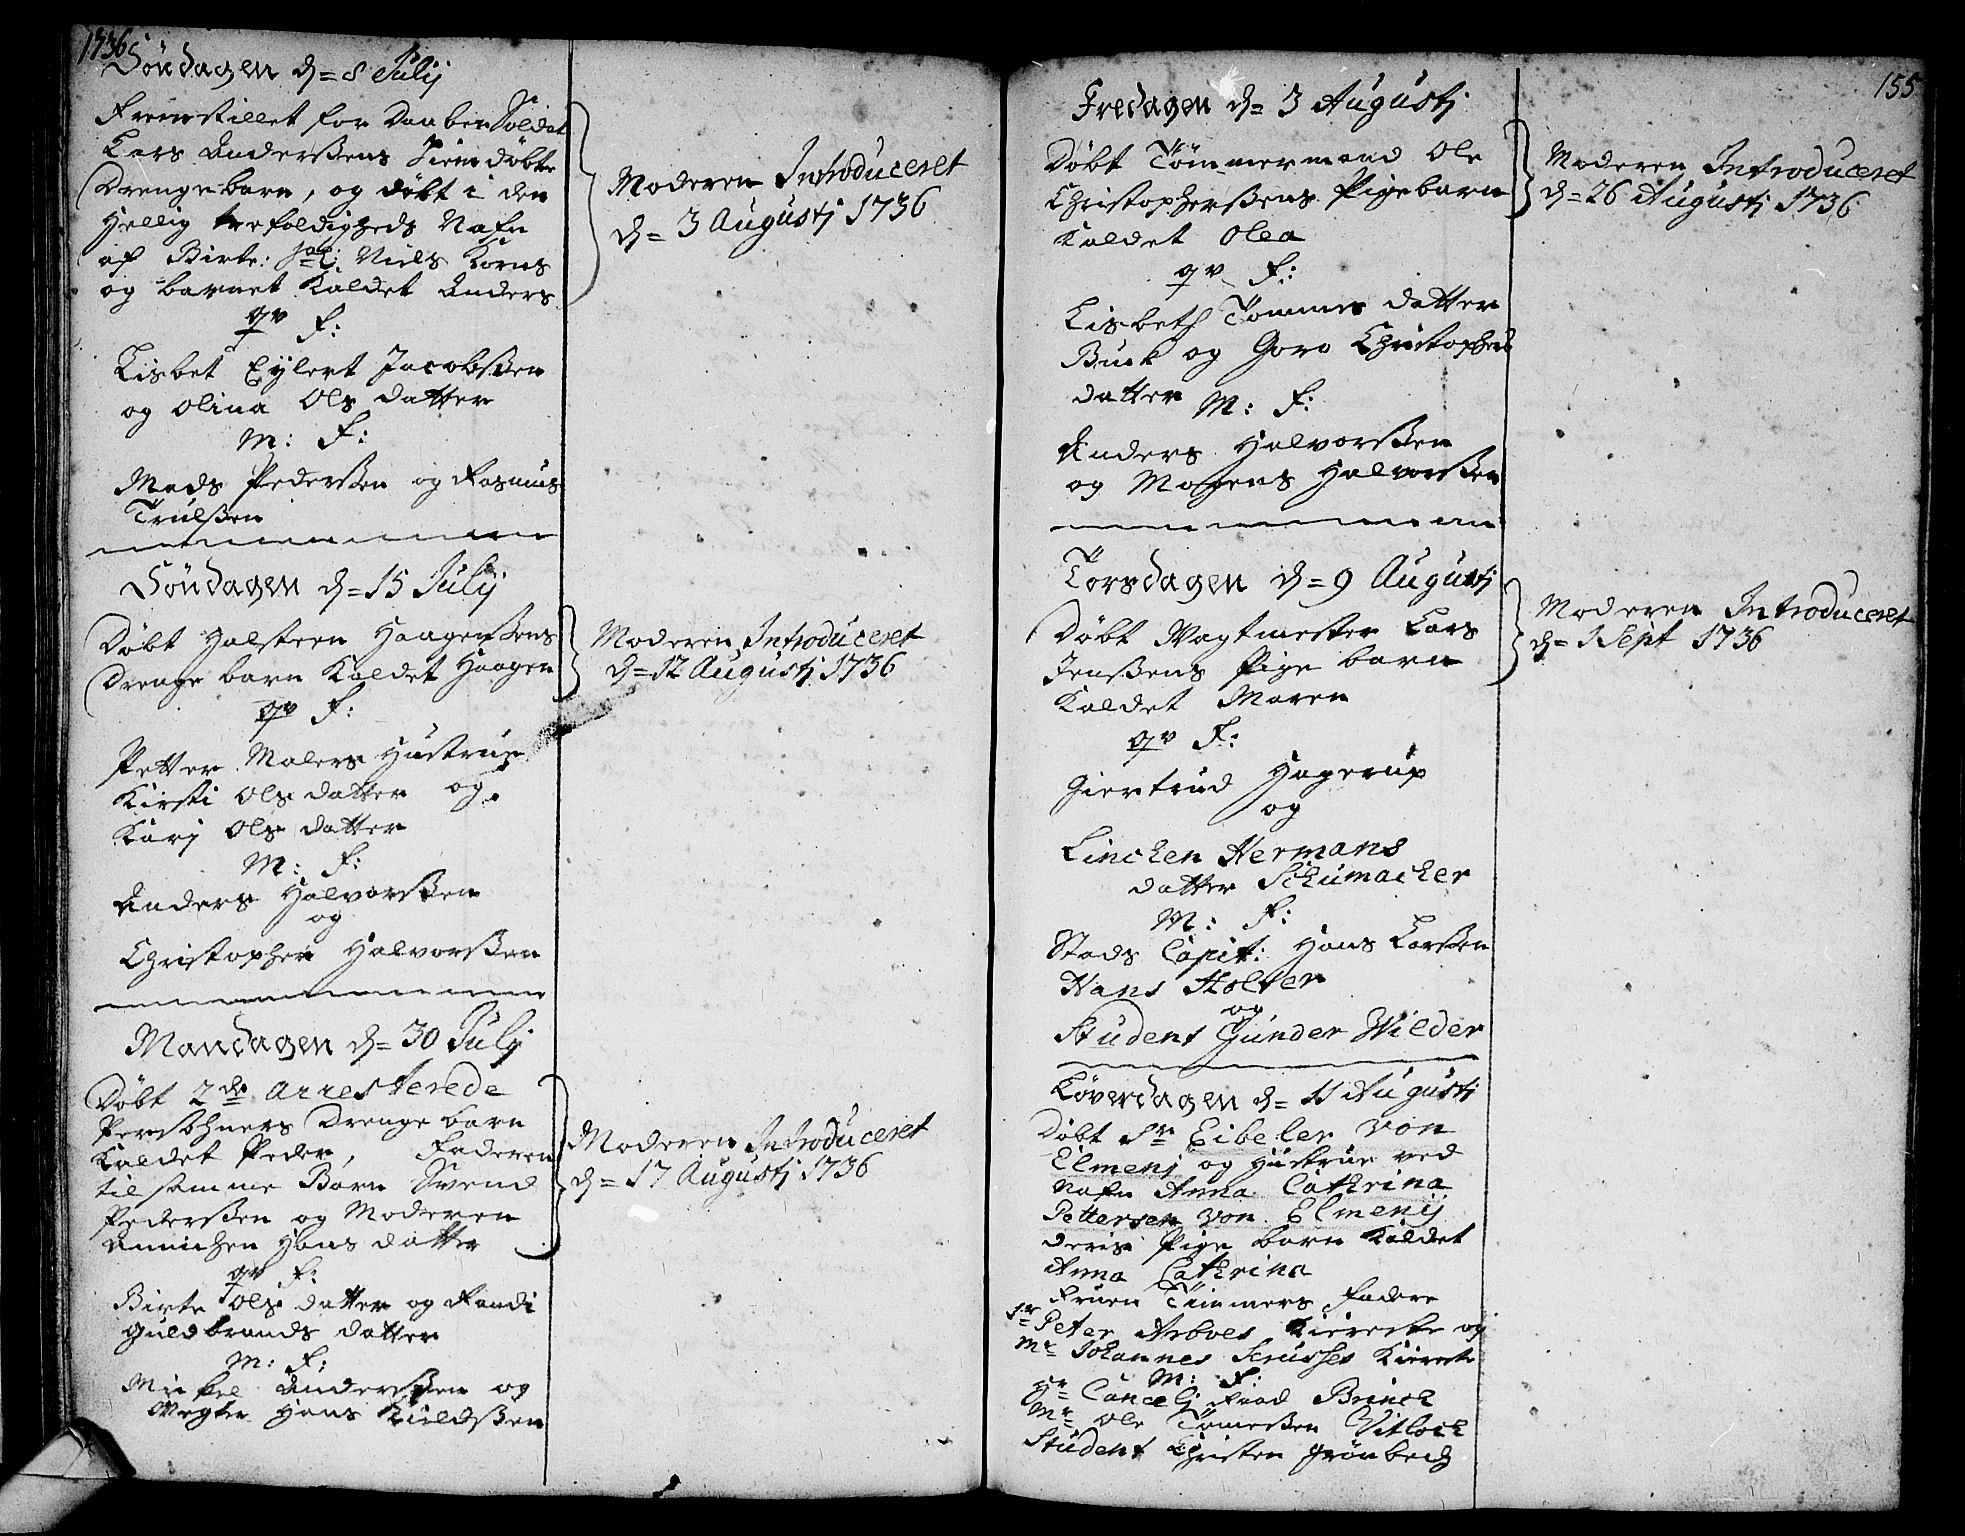 1736
Søndagen d= 8 Julij
Fremstillet for Daaben Soldat
Lars Anderßens hiemdøbte
Drengebarn, og døbt i den
Hellig trefoldigheds Nafn
af Birte: Sal: Niels Korns
og barnet Kaldet Anders
qv F:
Lisbet Eylert Jacobßen
og Olina Ols datter
M: F:
Mads Pederßen og Rasmus
Trulßen
Moderen Introduceret
d= 3 Augustj 1736
Søndagen d= 15 Julij
Døbt Halsteen Haagenßens
Drenge barn Kaldet Haagen
qv F:
Petter Malers Hustrue
Kirsti Ols datter og
Kari Ols datter
M: F:
Anders Halvorßen
og
Christopher Halvorßen
Moderen Introduceret
d= 12 Augustj 1736
Mandagen d= 30 Julij
Døbt 2de arresterede
Persohners Drenge barn
Kaldet Peder, Faderen
til samme Barn Svend
Pederßen og Moderen
Annichen Hans datter
qv F:
Birte Ols datter og Randi
Guldbrands datter
M: F:
Mickel Anderßen og
Vegter Hans Kieldßen
Moderen Introduceret
d= 17 Augustj 1736
155
Fredagen d= 3 Augustj
Døbt Tømmermand Ole
Christopherßens Pigebarn
Kaldet Olea
qv F:
Lisbeth Tommes datter
Buck og Goro Christophers
datter
M: F:
Anders Halvorßen
og Mogens Halvorßen
Moderen Introduceret
d= 26 Augustj 1736
Torsdagen d= 9 Augustj
Døbt Vagtmester Lars
Jenßens Pige barn
Kaldet Maren
qv F:
Giertrud Hagerup
og
Linchen Hermans
datter Schumacher
M: F:
Stads Capit: Hans Larßen
Hans Holter
og
Student Gunder Wilder
Moderen Introduceret
d= 1 Sept 1736
Løverdagen d= 11 Augustj
Døbt Sr Eibeler von
Elmenj og Hustrue ved
Nafn Anna Cathrina
Pettersen von Elmenij
deris Pige barn Kaldet
Anna Cathrina
Fruen Timmers faders
Sr Peter Arboes Kiereste og
Mr Johannes Kiereste
M: F:
Hr Cancelj Raad Brinch
Mr Ole Tømeßen Vitloch
Student Christen Grønbech